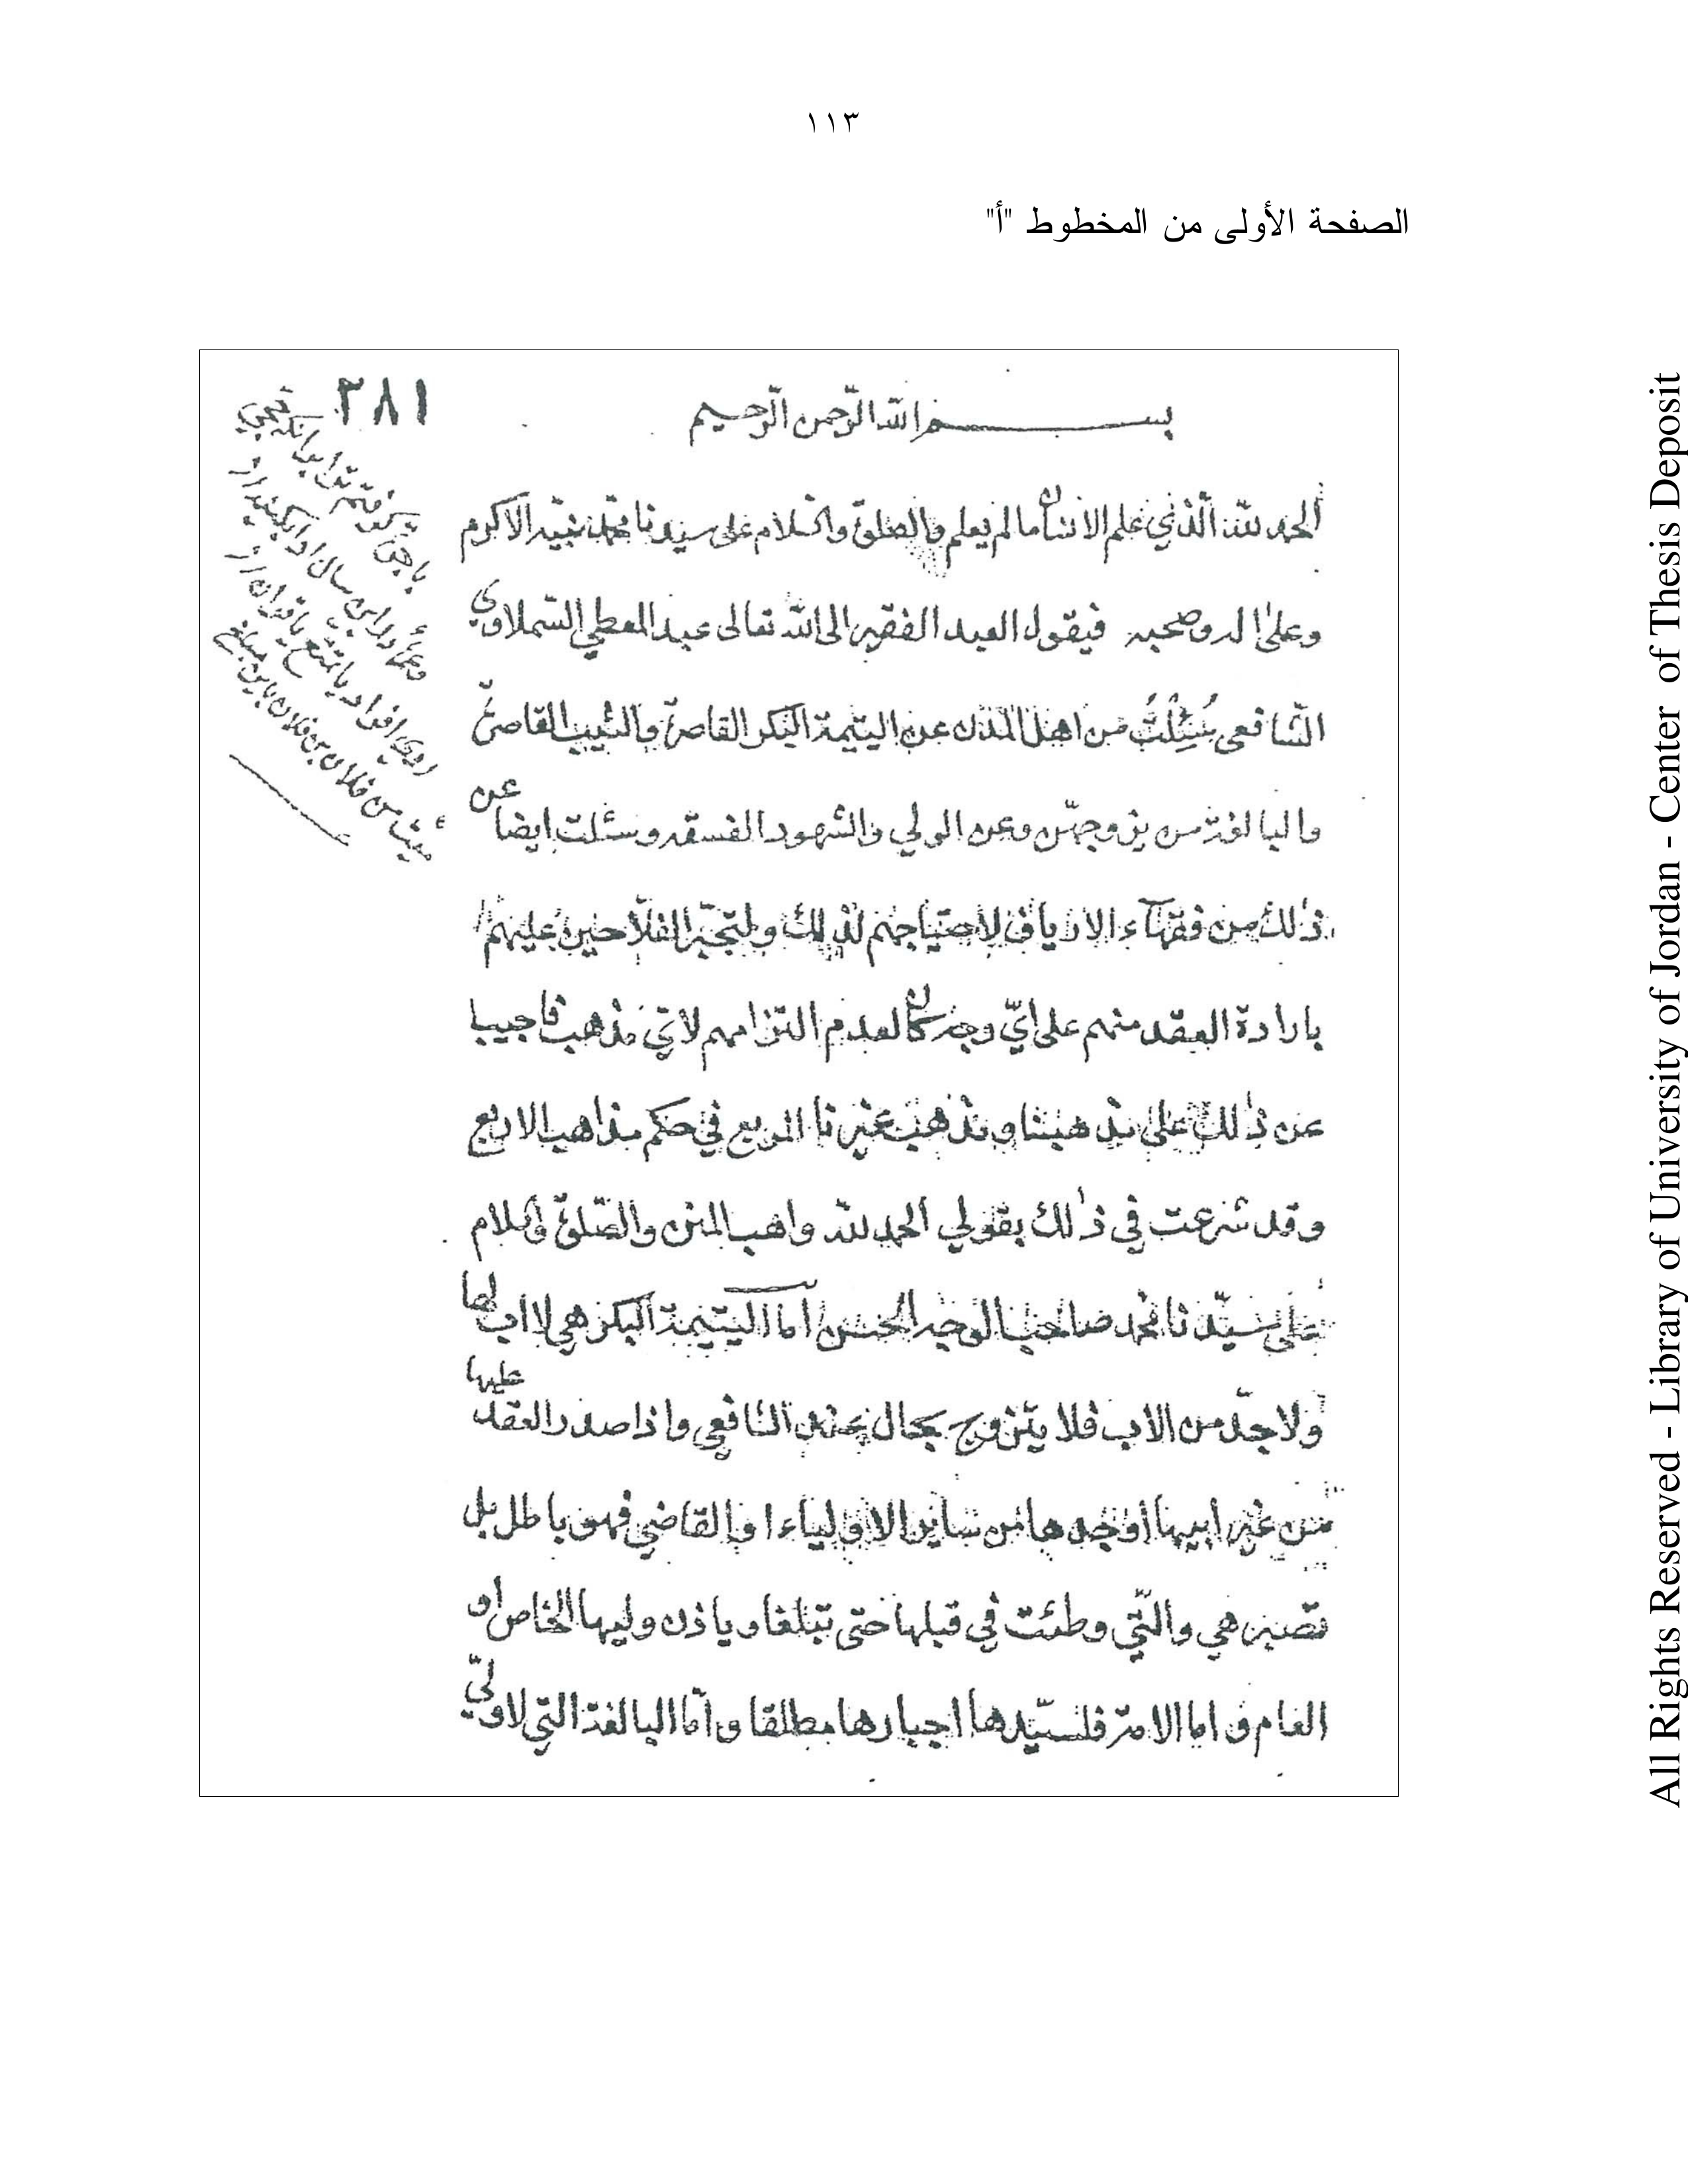 ١١٣
الصفحة الأولى من المخطوط "أ"
٣٨١
بسم الله الرحمن الرحيم
الحمد لله الذي علم الانسان ما لم يعلم والصلوة والسلام على سيدنا محمد نبيه الاكرم
وعلى اله وصحبه فيقول العبد الفقير الى الله تعالى عبد المعطي السملاوي
الشافعي سُئِلْتُ من اهل المدن عن اليتيمة البكر القاصرة والثيب القاصرة
والبالغة من يزوجهن وعن الولي والشهود الفسقه وسئلت ايضا عن
ذلك من فقهآء الارياف لاحتياجهم لذلك ولتجبر الفلاحين عليهم
بارادة العقد منهم على اي وجه كان لعدم التزامهم لاي مذهب فاجيبا
عن ذلك على مذهبنا ومذهب غيرنا المربع في حكم مذاهب الاربع
وقد شرعت في ذلك بقولي الحمد لله واهب المنن والصلوة والسلام
على سيدنا محمد صاحب الوجه الحسن اما اليتيمة البكر هي لا اب لها
ولا جد من الاب فلا يتزوج بحال عند الشافعي واذا صدر العقد عليها
من غير ابيها او جدها من ساير الاولياء او القاضي فهو باطل بل
تصبر هي والتي وطئت في قبلها حتى تبلغا وياذن وليها الخاص او
العام و اما الامة فلسيدها اجبارها مطلقا و اما البالغة التي لا ولي
All Rights Reserved - Library of University of Jordan - Center of Thesis Deposit